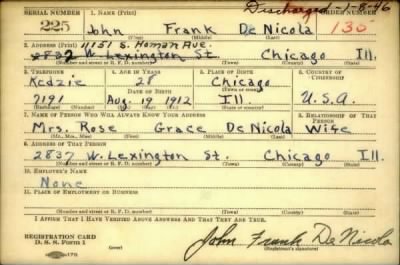 Discharged-1-8-46
SERIAL NUMBER 1. NAME (Print) ORDER NUMBER
225 John Frank De Nicola 130
(First) (Middle) (Last)
2. ADDRESS (Print) 11151 S. Homan Ave.
2837 W. Lexington St. Chicago Ill.
(Number and street or R. F. D. number) (Town) (County) (State)
3. TELEPHONE 4. AGE IN YEARS 5. PLACE OF BIRTH 6. COUNTRY OF CITIZENSHIP
Kedzie 28 Chicago
DATE OF BIRTH (Town or county)
7191 Aug. 19 1912 Ill. U.S.A.
(Exchange) (Number) (Mo.) (Day) (Yr.) (State or country)
7. NAME OF PERSON WHO WILL ALWAYS KNOW YOUR ADDRESS 8. RELATIONSHIP OF THAT PERSON
Mrs. Rose Grace De Nicola Wife
(Mr., Mrs., Miss) (First) (Middle) (Last)
9. ADDRESS OF THAT PERSON
2837 W. Lexington St. Chicago Ill.
(Number and street or R. F. D. number) (Town) (County) (State)
10. EMPLOYER'S NAME
None
11. PLACE OF EMPLOYMENT OR BUSINESS
(Number and street or R. F. D. number) (Town) (County) (State)
I AFFIRM THAT I HAVE VERIFIED ABOVE ANSWERS AND THAT THEY ARE TRUE.
REGISTRATION CARD
D. S. S. Form 1
John Frank De Nicola
(Registrant's signature)